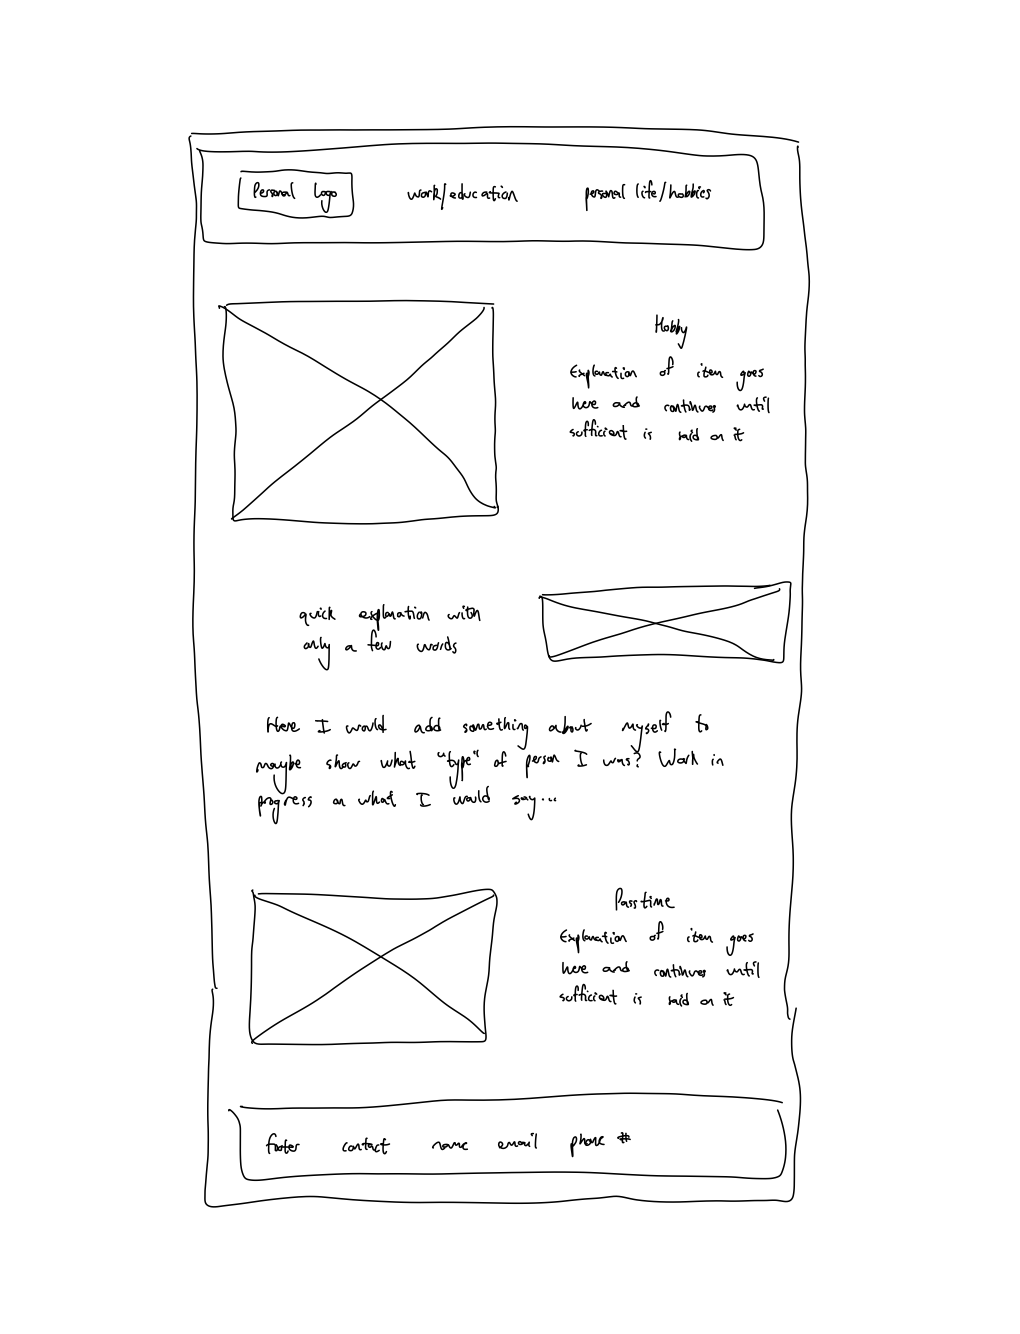 Personal Logo work/education personal life/hobbies
Hobby
Explanation of item goes
here and continues until
sufficient is said on it
quick explanation with
only a few words
Here I would add something about myself to
maybe show what "type" of person I was? Work in
progress on what I would say...
Passtime
Explanation of item goes
here and continues until
sufficient is said on it
footer contact name email phone #